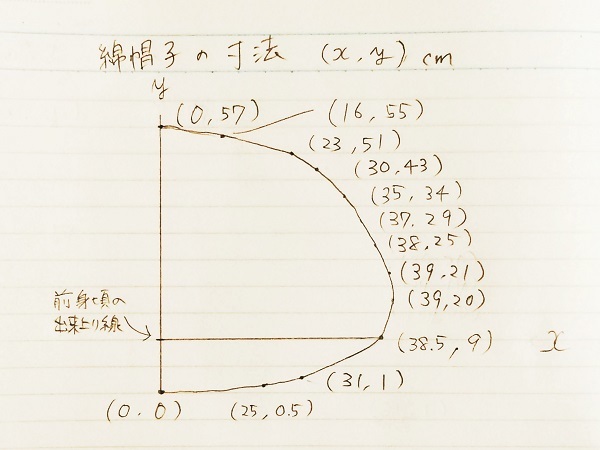 綿帽子の寸法 (x, y) cm
y
(0, 57)
(16, 55)
(23, 51)
(30, 43)
(35, 34)
(37. 29)
(38, 25)
(39, 21)
(39, 20)
前身頃の
出来上り線
(38.5, 9)
x
(31, 1)
(0. 0)
(25, 0.5)